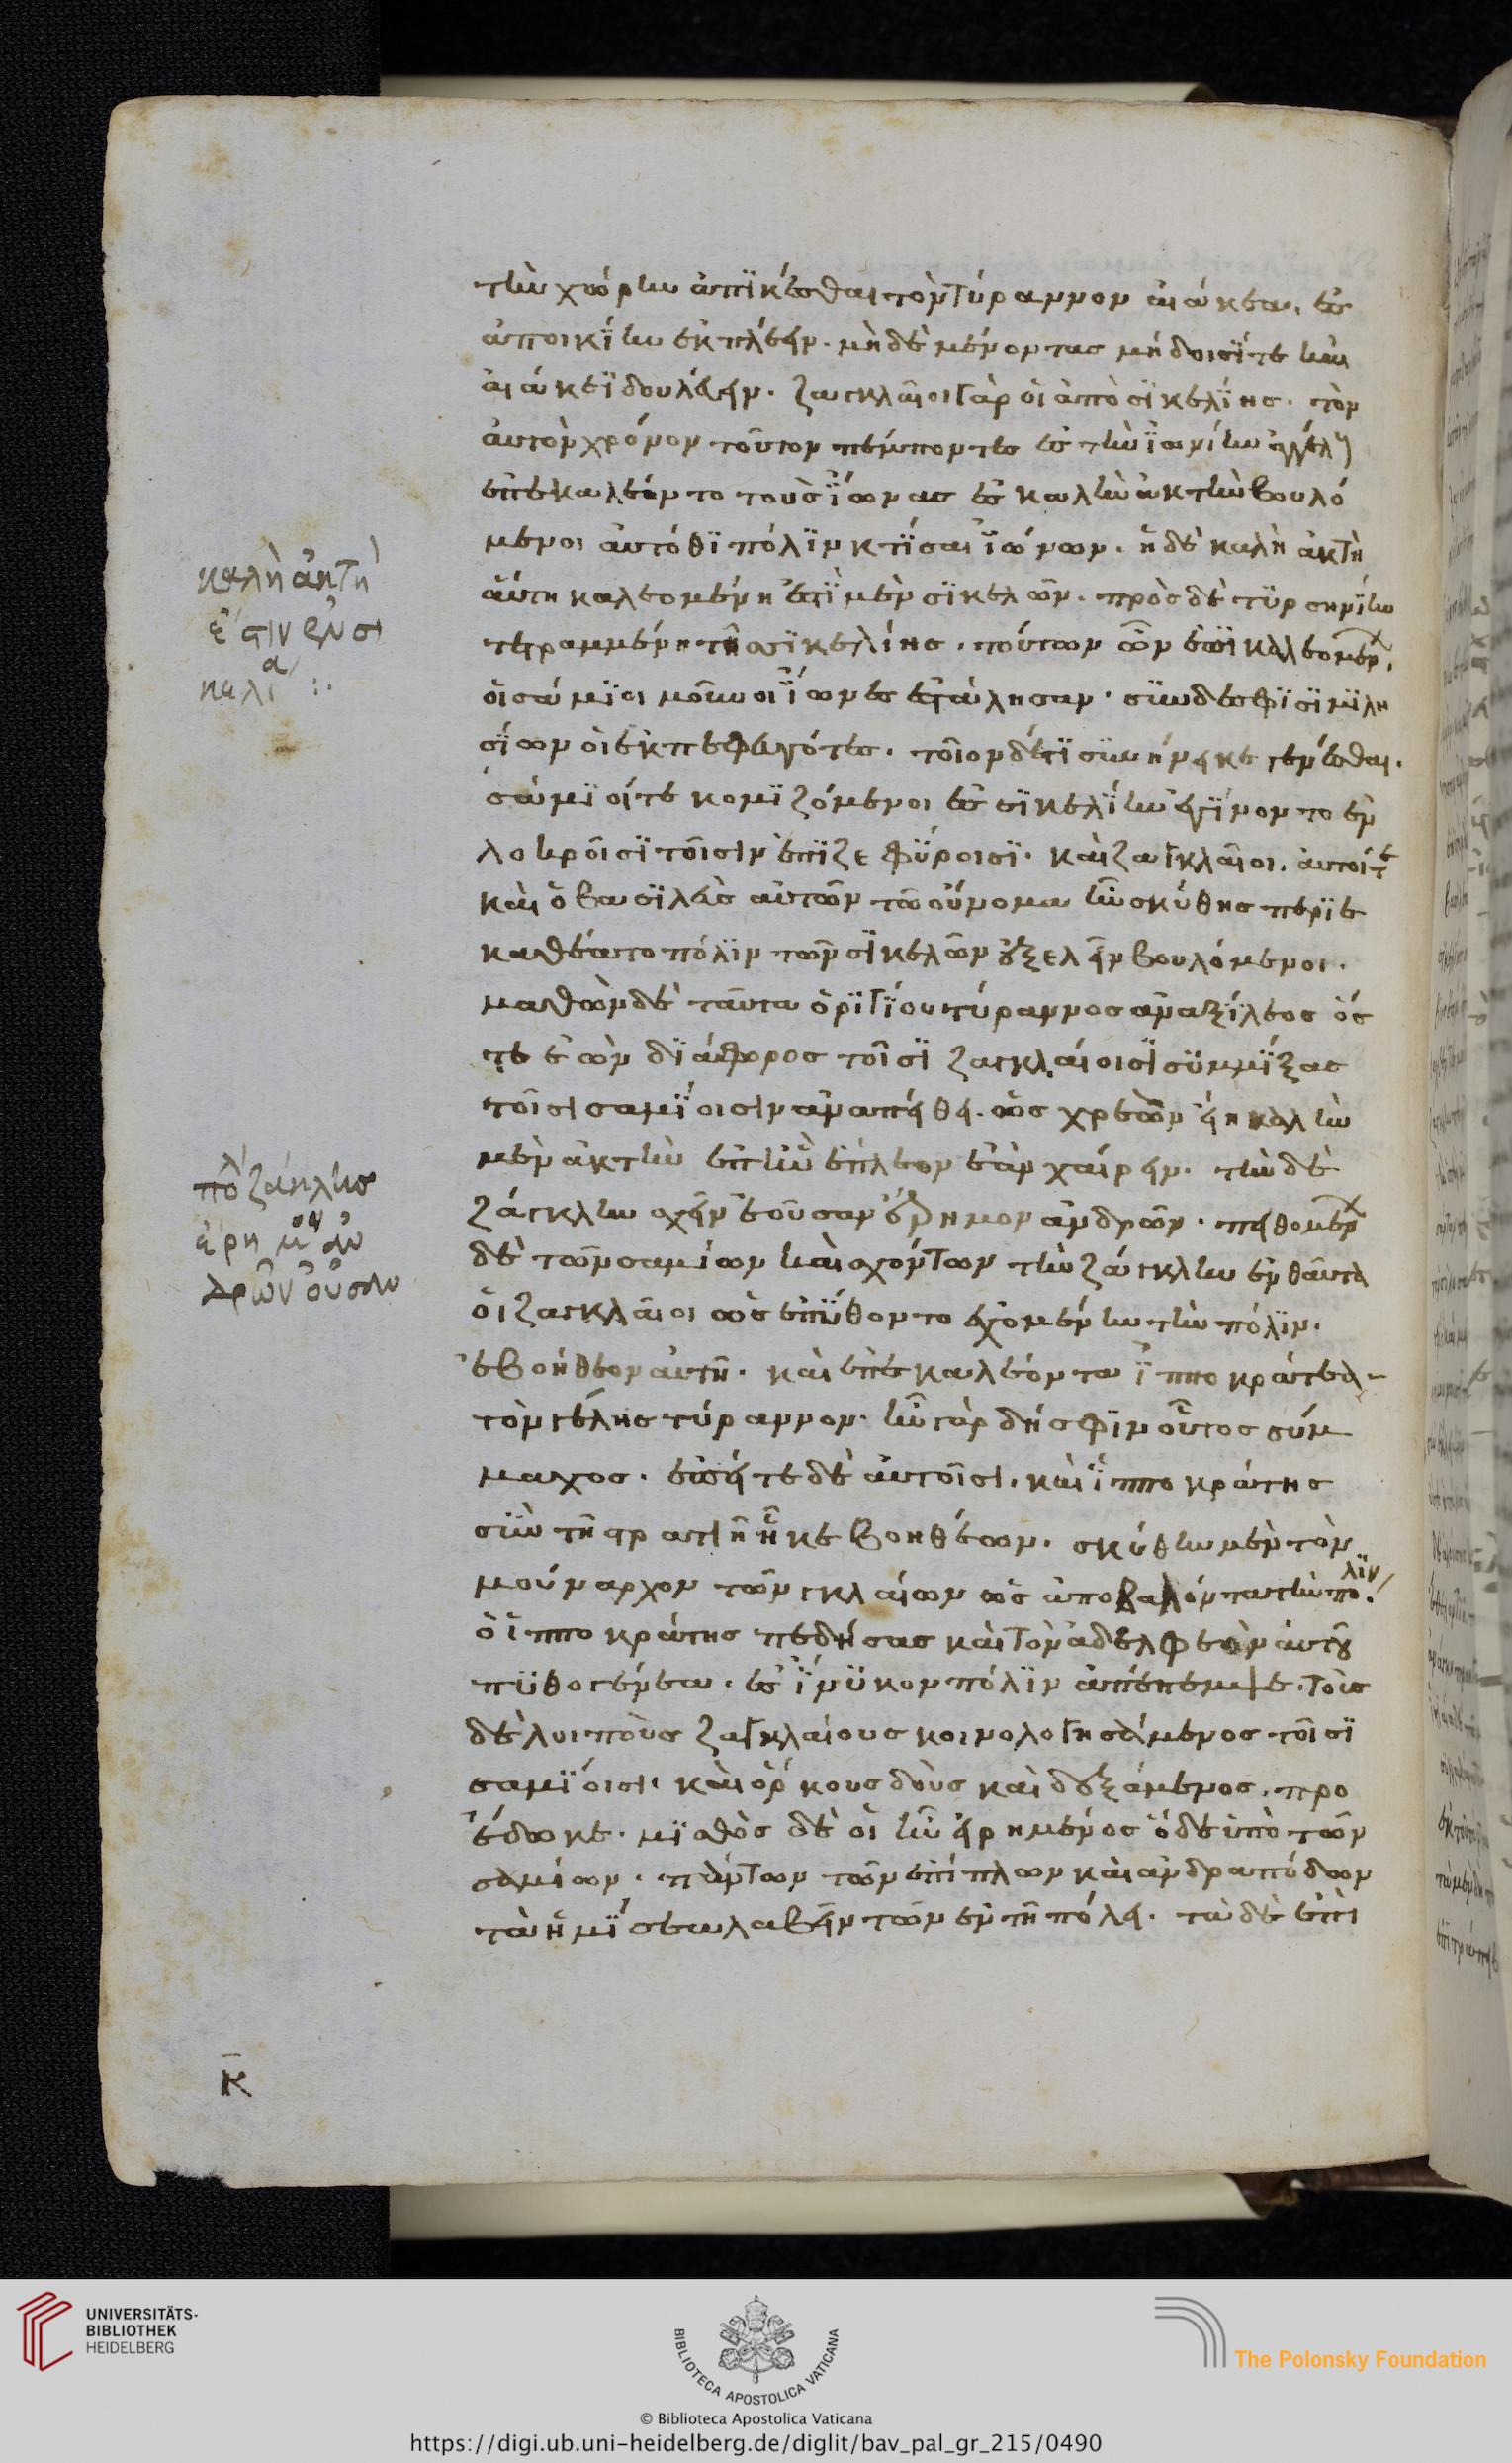 τὴν χώρην ἀπϊκέσθαι τὸν τύραννον αἰάκεα. ἐς
ἀποικΐην ἐκπλέειν. μὴ δὲ μένοντας μήδοισί τε καὶ
αἰάκεϊ δουλεύειν. ζαγκλαῖοι γὰρ οἱ ἀπὸ σϊκελΐης. τὸν
αὐτὸν χρόνον τοῦτον πέμποντες ἐς τὴν ϊωνίην ἀγγέλ
ἐπεκαλέοντο τοὺς ΐωνας ἐς καλὴν ἀκτὴν βουλό
μενοι αὐτόθϊ πόλϊν κτΐσαι ϊώνων. ἡ δὲ καλὴ ἀκτὴ
αὕτη καλεομένη ἐστΐ μὲν σϊκελῶν. πρὸς δὲ τϋρσηνΐην
τετραμμένη τῆς σϊκελίης. τούτων ὦν ἐπϊκαλεομέν
οἱ σάμϊοι μοῦνοι ϊώνων ἐστάλησαν. σὺν δέ σφϊ σϊ μϊλη
σΐων οἱ ἐκπεφευγότες. τοῖον δέ τϊ συνήνεικε γενέσθαι.
σάμϊοί τε κομϊζόμενοι ἐς σϊκελΐην ἐγΐνοντο ἐν
λοκροῖσϊ τοῖσιν ἐπϊζεφϋρΐοισϊ. καὶ ζαγκλαῖοι. αὐτοί τε
καὶ ὁ βασϊλεὺς αὐτῶν τῶ οὔνομα ἦν σκύθης περϊε
κατέατο πόλϊν τῶν σϊκελῶν ἐξελεῖν βουλόμενοι.
μαθὼν δὲ ταῦτα ὁ ρϊγΐου τύραννος ἀναξΐλεος ὅς
τε ἐὼν δϊάφορος τοῖσϊ ζαγκλαίοισϊ συμμΐξας
τοῖσι σαμΐοισιν ἀναπείθει. ὡς χρεὼν εἴη καλὴν
μὲν ἀκτὴν ἐπ' ἣν ἔπλεον ἐᾶν χαίρειν. τὴν δὲ
ζάγκλην σχεῖν ἐοῦσαν ἔρημον ἀνδρῶν. πειθομέν
δὲ τῶν σαμίων καὶ σχόντων τὴν ζάγκλην ἐνθαῦτα
οἱ ζαγκλαῖοι ὡς ἐπύθοντο ἐχομένην τὴν πόλϊν.
ἐβοήθεον αὐτῆ. καὶ ἐπεκαλέοντο ϊπποκράτεα
τὸν γέλης τύραννον. ἦν γὰρ δή σφϊν οὗτος σύμ
μαχος. ἐπεί τε δὲ αὐτοῖσι. καὶ ϊπποκράτης
σὺν τῆ στρατιῆ ἧκε βοηθέων. σκύθην μὲν τὸν
μούναρχον τῶν γκλαίων ὡς ἀποβαλόντα τὴν πόλϊν
ὁ ϊπποκράτης πεδήσας καὶ τὸν ἀδελφεὸν αὐτοῦ
πϋθογένεα. ἐς ΐνϋκον πόλϊν ἀπέπεμψε. τοὺς
δὲ λοιποὺς ζαγκλαίους κοινολογησάμενος τοῖσϊ
σαμΐοισι. καὶ ὅρκους δοὺς καὶ δεξάμενος. προ
έδωκε. μϊσθὸς δὲ οἱ ἦν εἰρημένος ὅδε ὑπὸ τῶν
σαμίων. πάντων τῶν ἐπίπλων καὶ ἀνδραπόδων
τὰ ἡμΐσεα λαβεῖν τῶν ἐν τῆ πόλει. τὰ δὲ ἐπὶ
καλὴ ἀκτὴ
ἔστιν ἐν σι
κελία :.
πόλ ζάγκλης
ἐρήμου ἀν
δρῶν οὔσην
κ̄
UNIVERSITÄTS-
BIBLIOTHEK
HEIDELBERG
BIBLIOTECA APOSTOLICA VATICANA
The Polonsky Foundation
© Biblioteca Apostolica Vaticana
https://digi.ub.uni-heidelberg.de/diglit/bav_pal_gr_215/0490